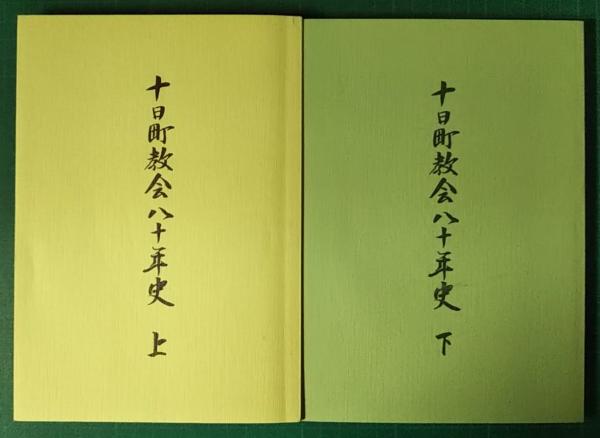 十日町教会八十年史 上
十日町教会八十年史 下